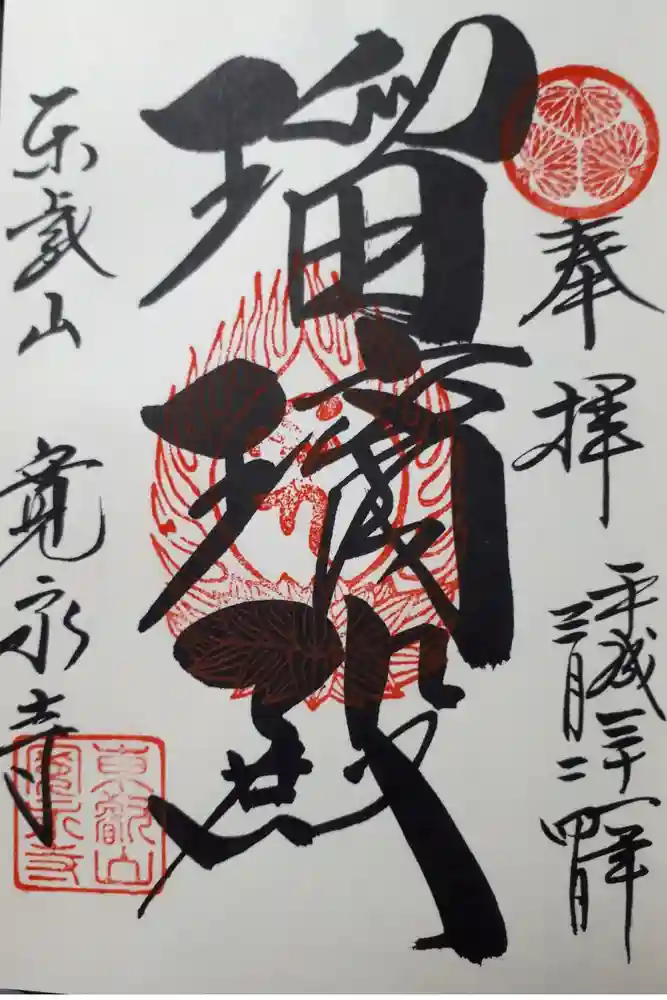 奉拝
平成三十一年
三月二十四日
瑠璃殿
東叡山 寛永寺
東叡山
寛永寺